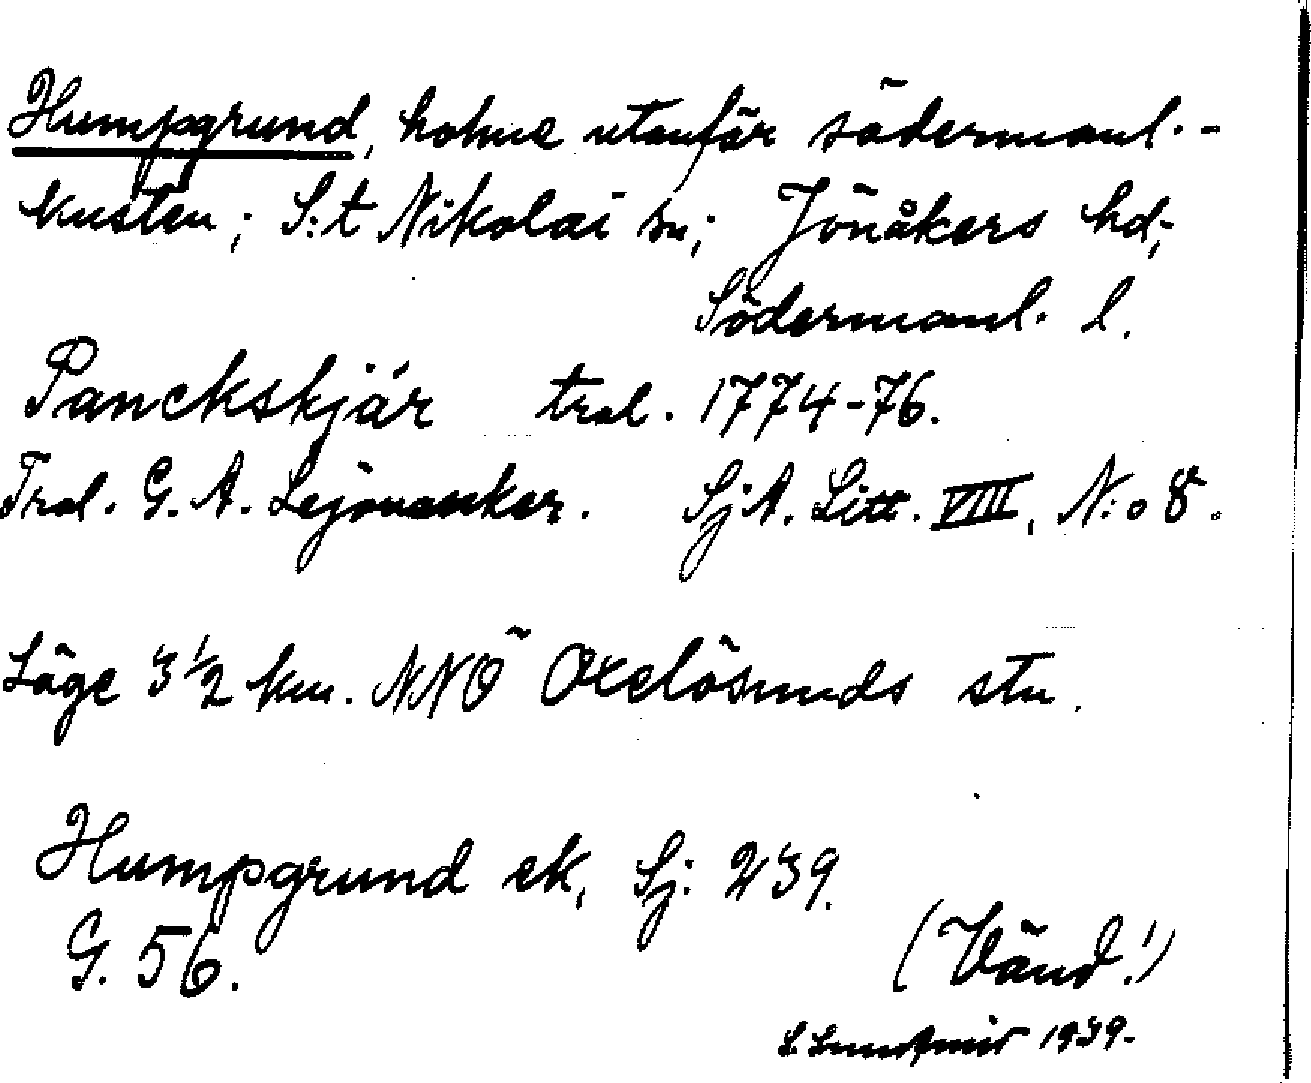 Humpgrund, holme utanför södermanl.-
kusten; S:t Nikolai sn; Jönåkers hd;
Södermanl. l.
Panckskjär tral. 1774-76.
Tral. G. A. Lejonanker. SjA. Litt. VIII, N:o 8.
Läge 3 1/2 km. NNÖ Oxelösunds stn.
Humpgrund ek, Sj: 239.
G. 56.
(Vänd!)
1939.